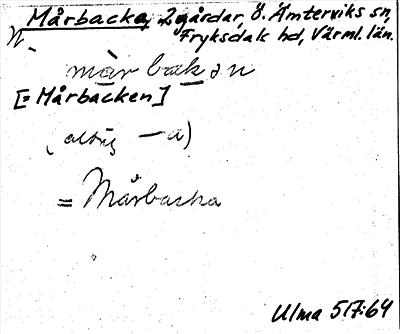 Mårbacka, 2 gårdar, Ö. Ämterviks sn,
N. Fryksdals hd, Värml. län.
mår bakən
[= Mårbacken]
(aldrig —a)
= Mårbacka
Ulma 517:64